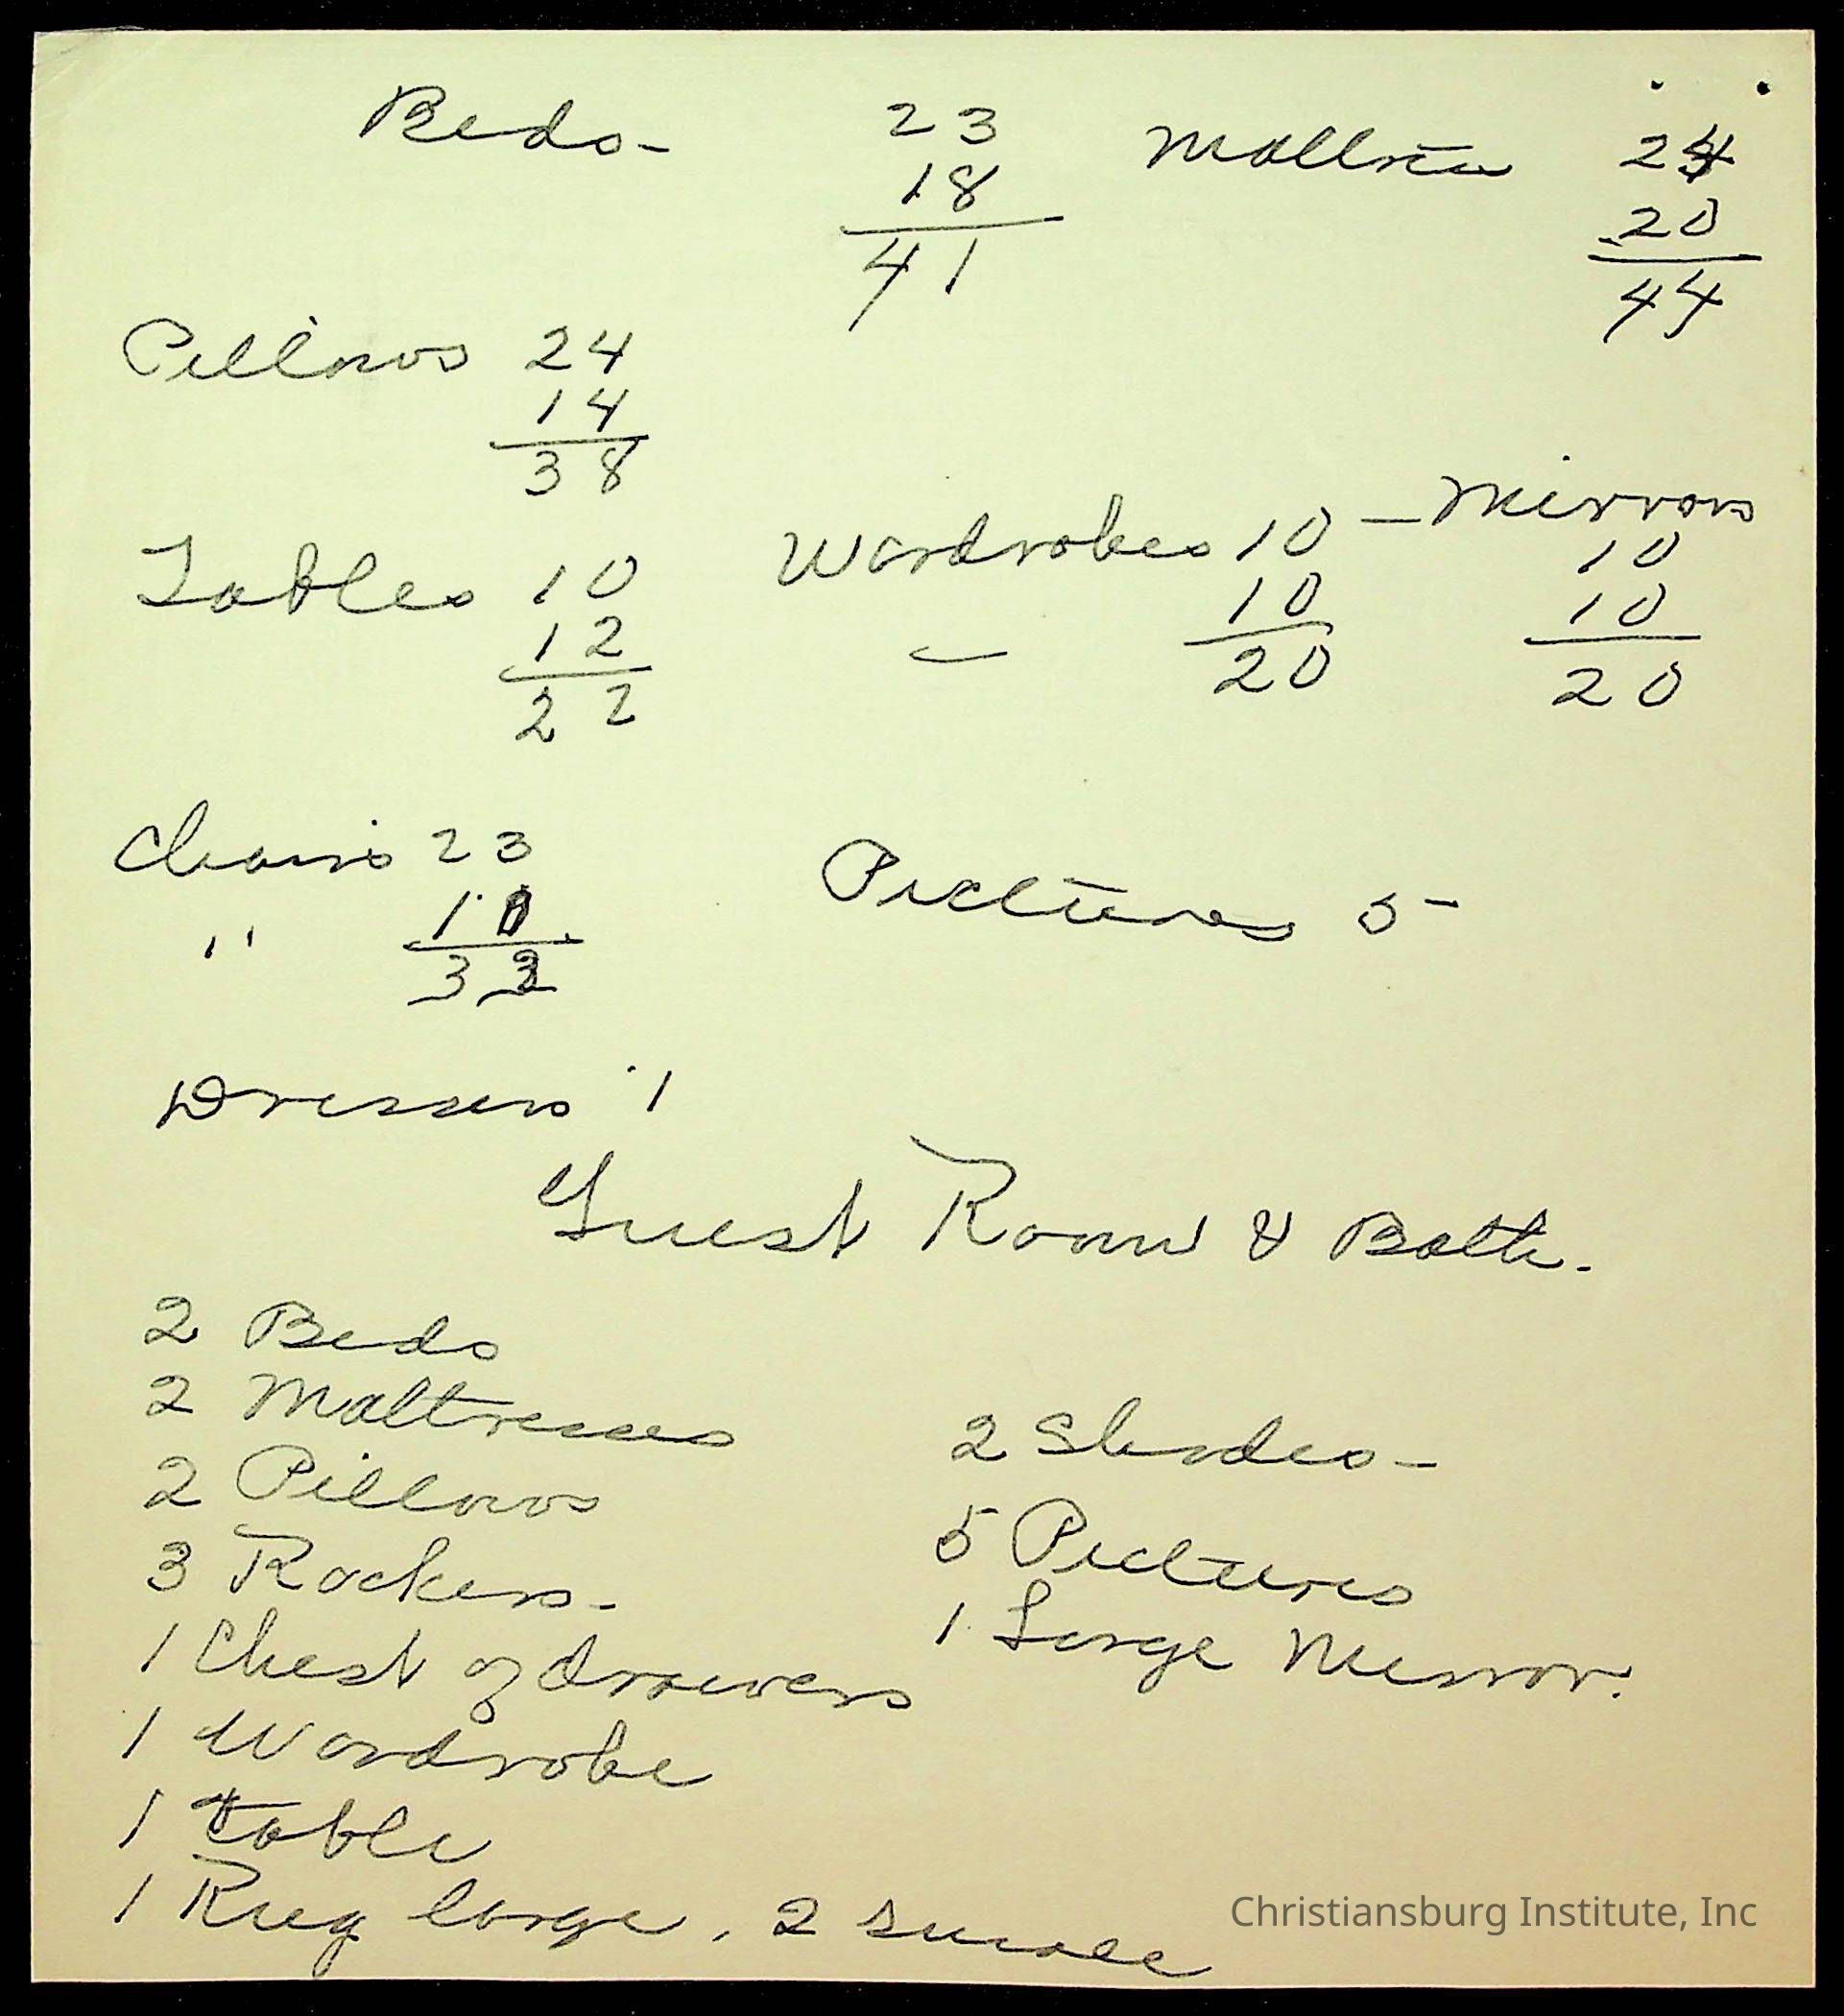 Beds - 23 Mattress 24
18 20
41 44
Pillows 24
14
38
Tables 10 Wardrobes 10 - Mirrors
12 10 10
22 - 20 10
20
Chairs 23 Pictures 5 -
" 10
33
Dressers 1
Guest Room & Bath.
2 Beds
2 Mattresses
2 Pillows
3 Rockers -
1 Chest of drawers
1 Wardrobe
1 table
1 Rug large, 2 small
2 Shades -
5 Pictures
1 Large Mirror.
Christiansburg Institute, Inc